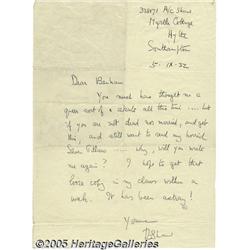 338171 A/c Shaw
Myrtle Cottage
Hythe
Southampton
5.IX.32
Dear Banham
You must have thought me a
queer sort of a all this time.... but
if you are not dead nor married, and get
this, and still want to read my horrid
Seven Pillars — why, will you write
me again? I hope to get that
loose copy in my claws within a
week. It has been astray!
Yours
TEShaw
©2005 HeritageGalleries